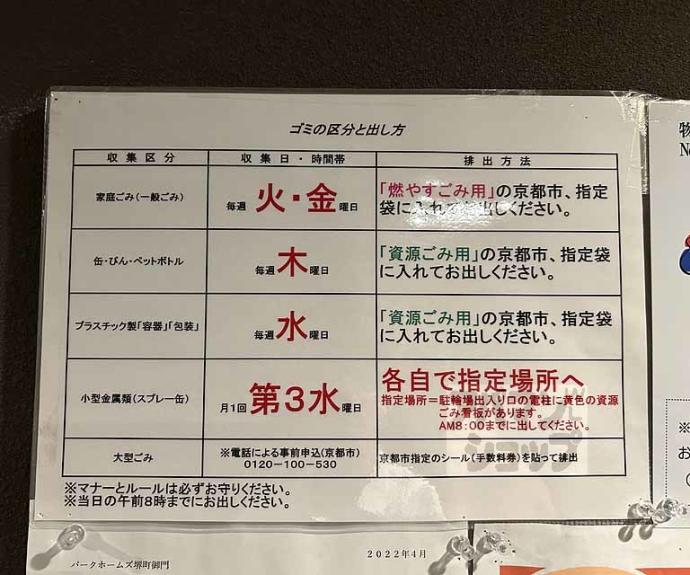 ゴミの区分と出し方
収集区分
収集日・時間帯
排出方法
家庭ごみ(一般ごみ)
毎週 火・金曜日
「燃やすごみ用」の京都市、指定
袋に入れてお出しください。
缶・びん・ペットボトル
毎週 木曜日
「資源ごみ用」の京都市、指定袋
に入れてお出しください。
プラスチック製「容器」「包装」
毎週 水曜日
「資源ごみ用」の京都市、指定袋
に入れてお出しください。
小型金属類(スプレー缶)
月1回 第3水曜日
各自で指定場所へ
指定場所=駐輪場出入り口の電柱に黄色の資源
ごみ看板があります。
AM8:00までに出してください。
大型ごみ
※電話による事前申込(京都市)
0120-100-530
京都市指定のシール(手数料券)を貼って排出
※マナーとルールは必ずお守りください。
※当日の午前8時までにお出しください。
ショップ
2022年4月
パークホームズ堺町御門
物
No
※
お